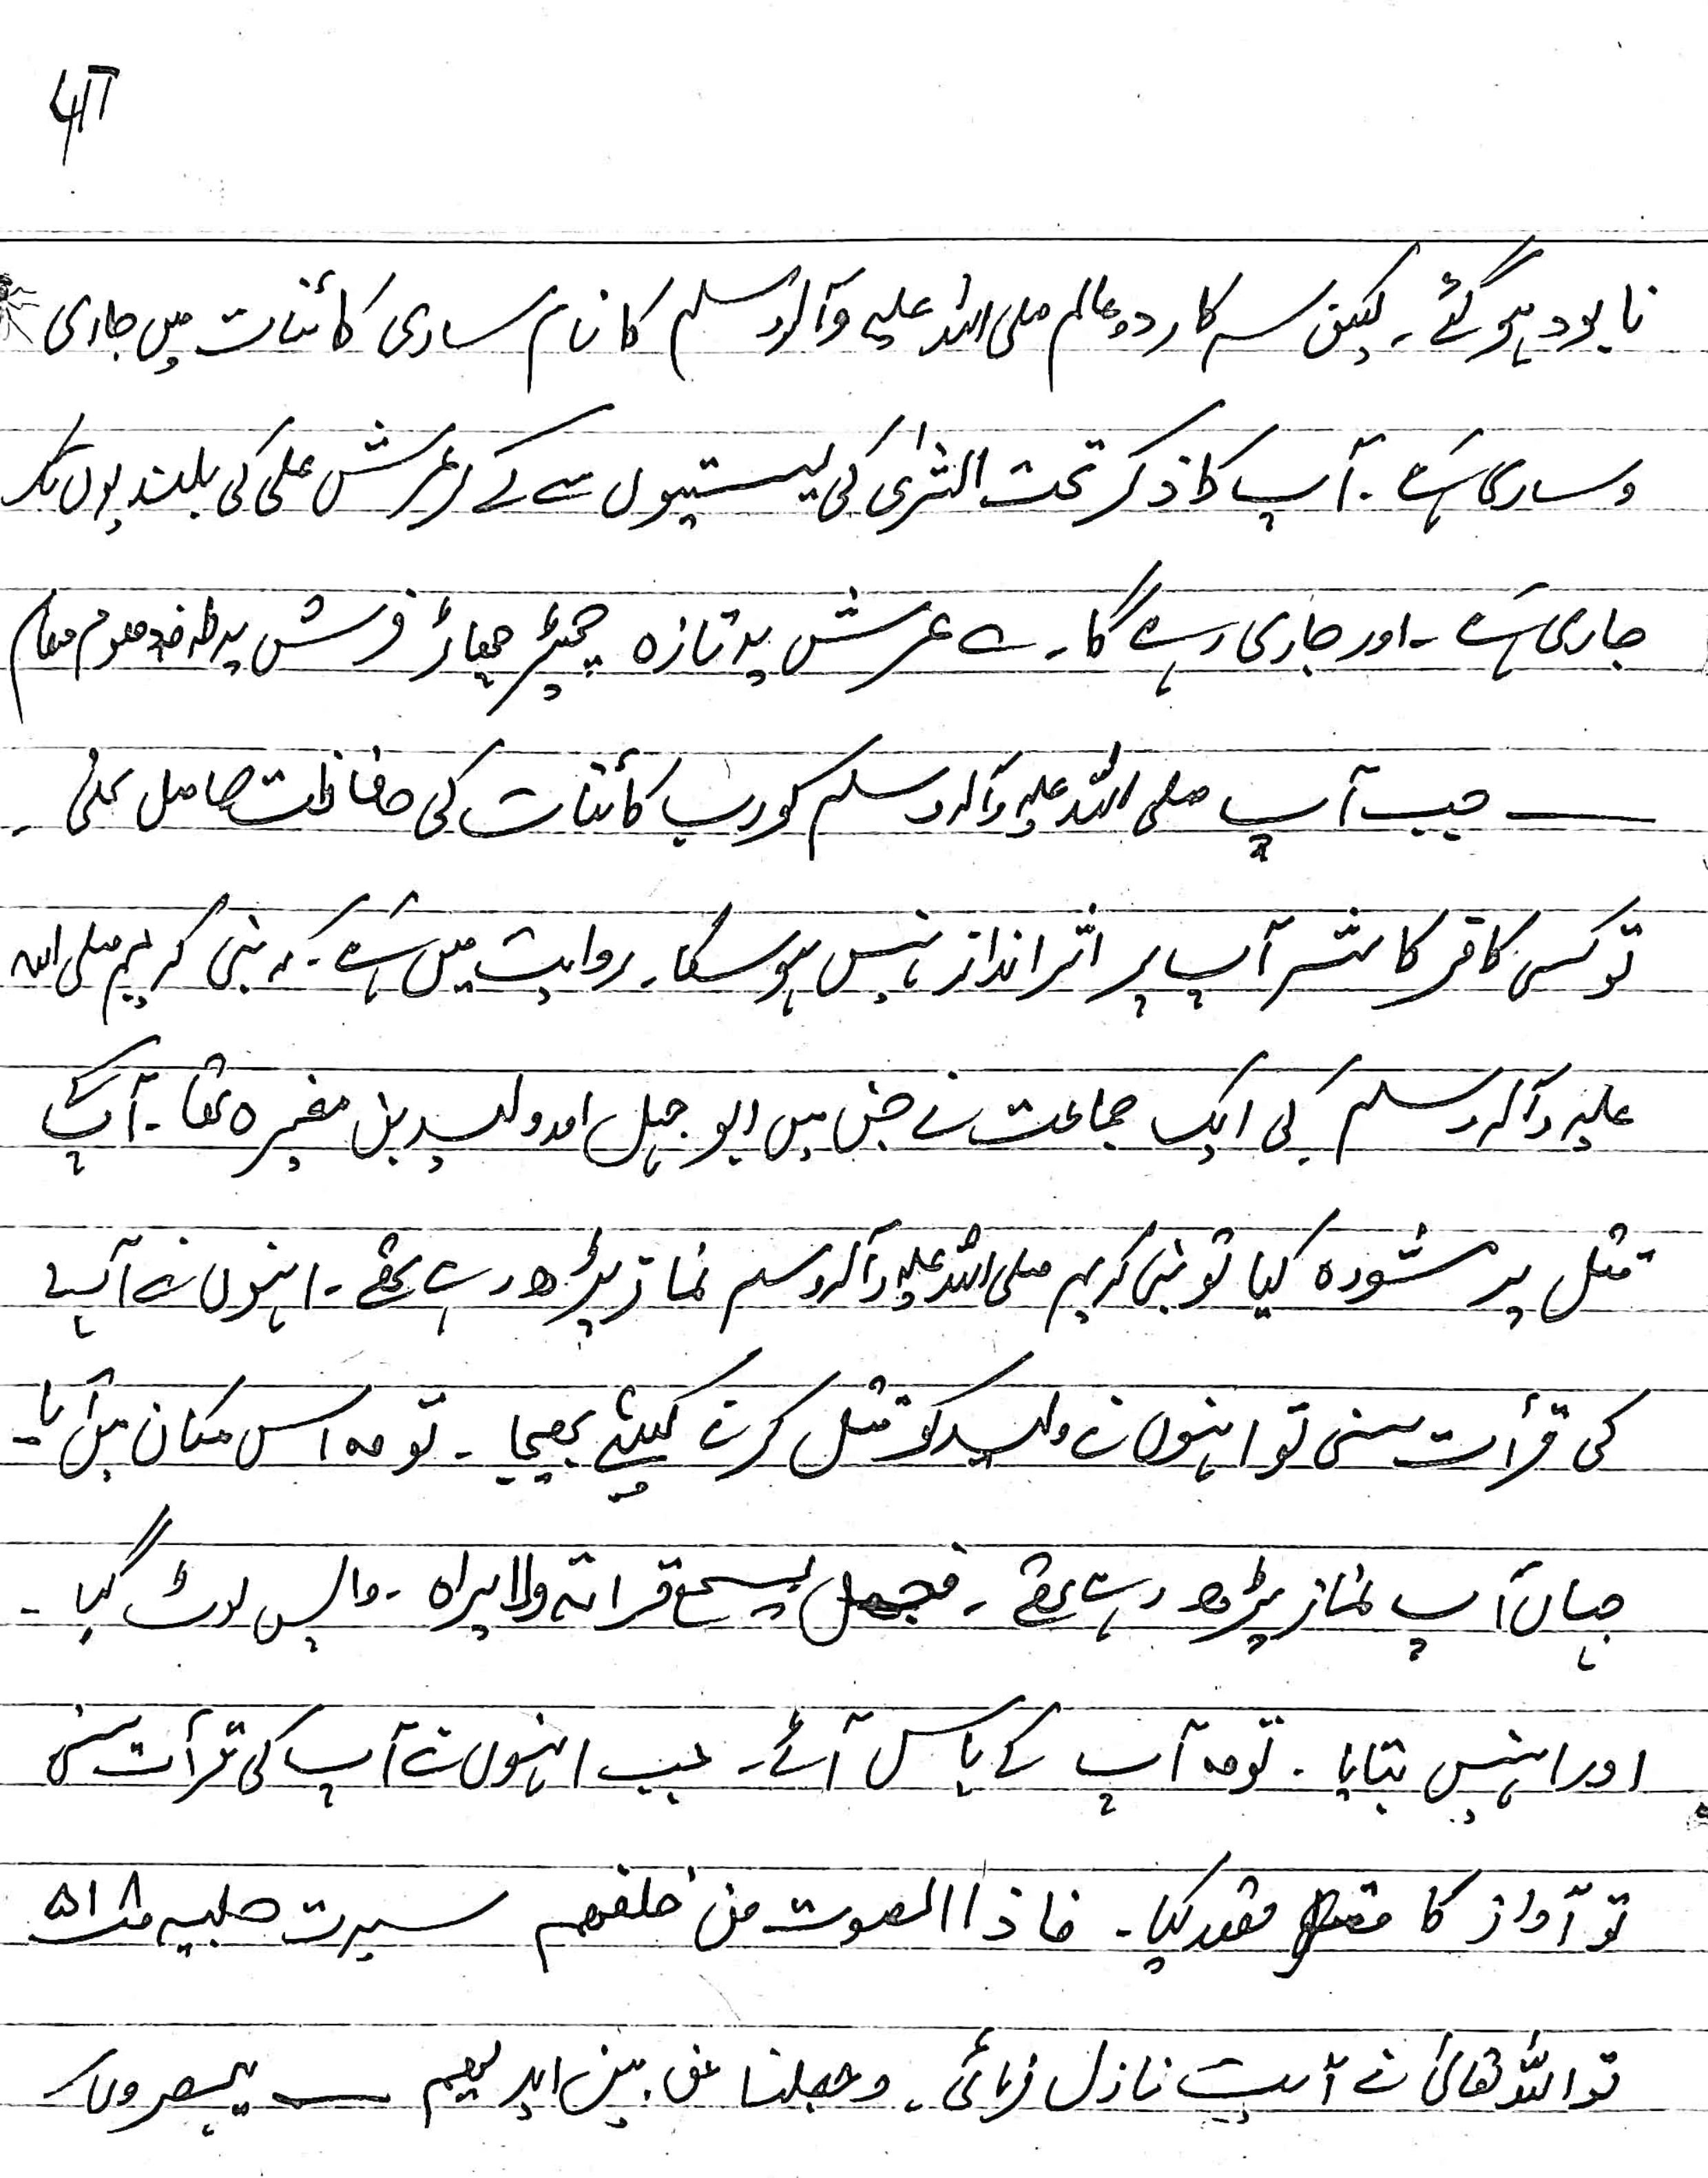 نابود ہوگئے۔ لیکن سرکار دوعالم صلی اللہ علیہ وآلہ وسلم کا نام ساری کائنات میں جاری
وساری ہے۔ آپ کا ذکر تحت الثریٰ کی پستیوں سے لے کر عرش علی کی بلندیوں تک
جاری ہے۔ اور جاری رہے گا۔ ے عرش پہ تازہ چھیڑ چھاڑ فرش پہ طرفہ دھوم دھام
جب آپ صلی اللہ علیہ وآلہ وسلم کو رب کائنات کی حفاظت حاصل تھی۔
تو کسی کافر کا شر آپ پر اثر انداز نہیں ہوسکا۔ روایت میں ہے۔ کہ نبی کریم صلی اللہ
علیہ وآلہ وسلم کی ایک جماعت نے جن میں ابوجہل اور ولید بن مغیرہ تھا۔ آپ کے
قتل پر مشورہ کیا تو نبی کریم صلی اللہ علیہ وآلہ وسلم نماز پڑھ رہے تھے۔ انہوں نے آپ
کی قرأت سنی تو انہوں نے ولید کو قتل کرنے کیلئے بھیجا۔ تو وہ اس مکان میں آیا۔
جہاں آپ نماز پڑھ رہے تھے۔ فجعل یسمع قراتہ ولا یراہ۔ واپس لوٹ گیا۔
اور انہیں بتایا۔ تو وہ آپ کے پاس آئے۔ جب انہوں نے آپ کی قرأت سنی
تو آواز کا قصد کیا۔ فاذا الصوت من خلفھم سیرت حلبیہ ص ۵۱۸
تو اللہ تعالیٰ نے آیت نازل فرمائی۔ وجعلنا من بین ایدیھم ــــ یبصرون